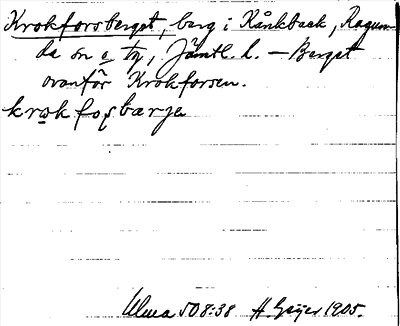 Krokforsberget, berg i Kånkback, Ragun-
da sn o. tg, Jämtl. l. — Berget
ovanför Krokforsen.
krokfosbarje
Ulma 508:38 H. Geijer 1905.